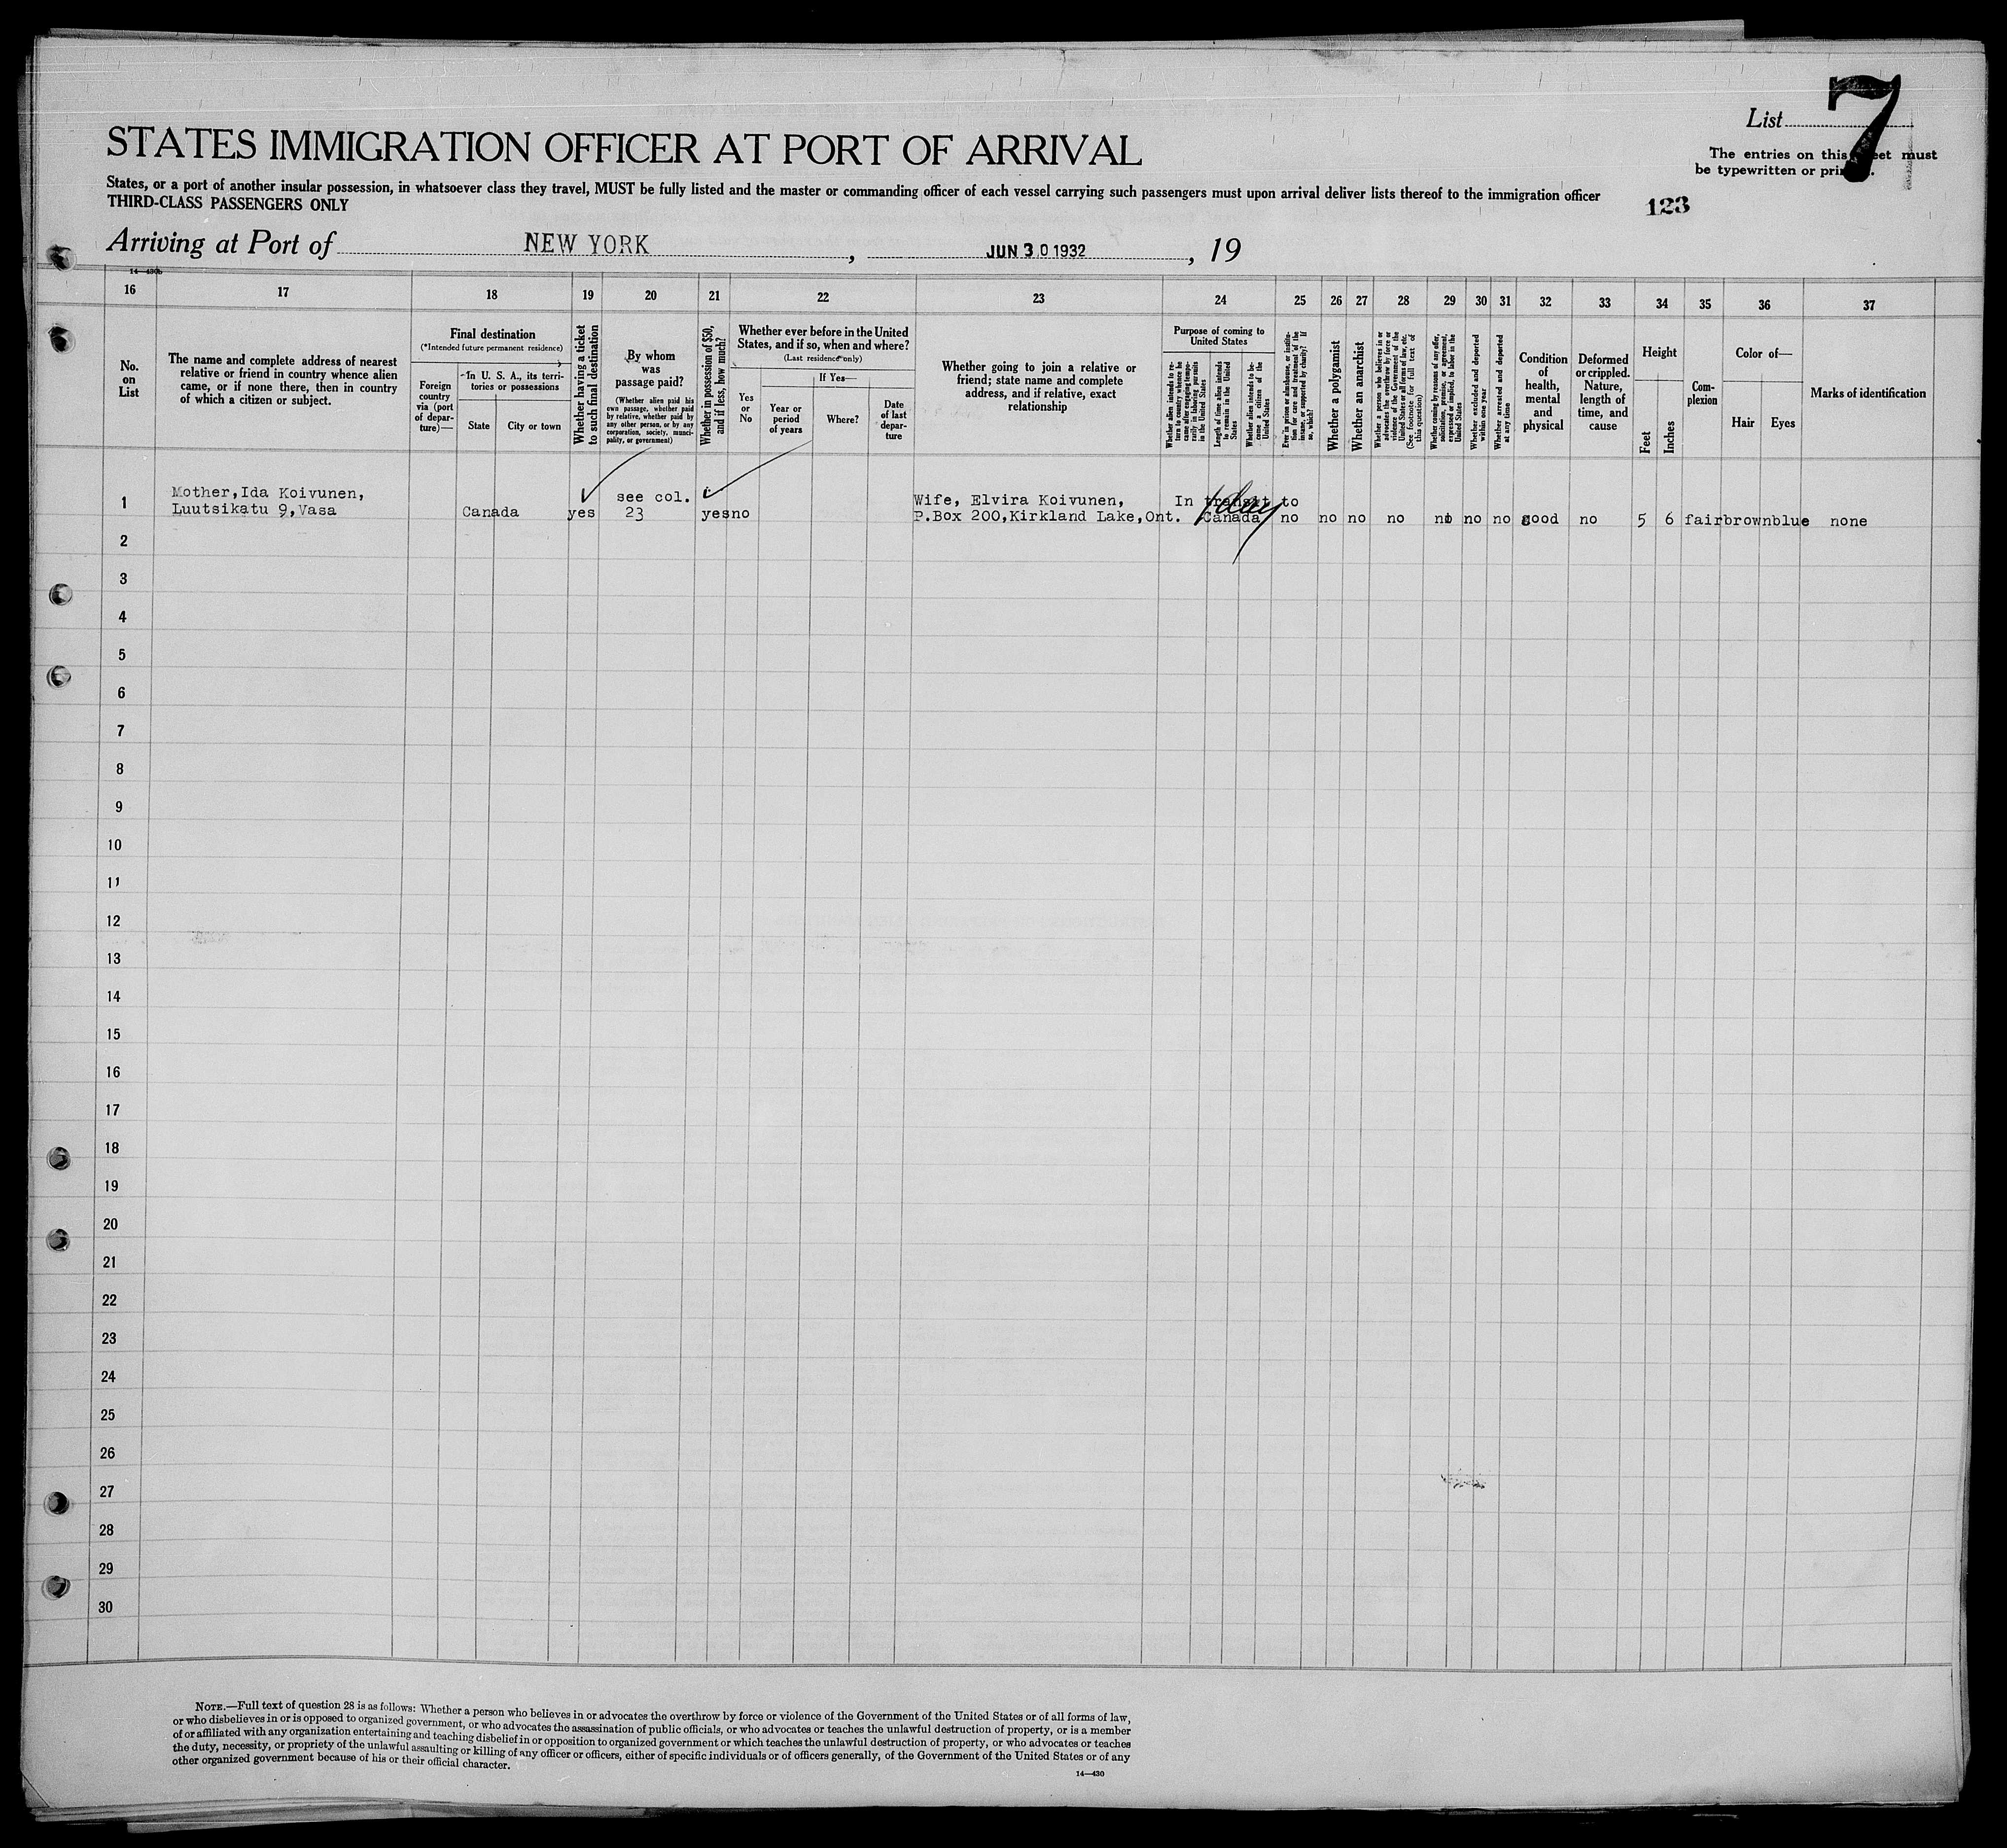 List 7
STATES IMMIGRATION OFFICER AT PORT OF ARRIVAL
The entries on this must
be typewritten or
States, or a port of another insular possession, in whatsoever class they travel, MUST be fully listed and the master or commanding officer of each vessel carrying such passengers must upon arrival deliver lists thereof to the immigration officer
THIRD-CLASS PASSENGERS ONLY
123
Arriving at Port of NEW YORK, JUN 30 1932, 19
14—430b
16 17 18 19 20 21 22 23 24 25 26 27 28 29 30 31 32 33 34 35 36 37
No.
on
List
The name and complete address of nearest
relative or friend in country whence alien
came, or if none there, then in country
of which a citizen or subject.
Final destination
(*Intended future permanent residence)
Foreign
country
via (port
of depar-
ture)—
In U. S. A., its terri-
tories or possessions
State
City or town
Whether having a ticket
to such final destination
By whom
was
passage paid?
(Whether alien paid his
own passage, whether paid
by relative, whether paid by
any other person, or by any
corporation, society, munici-
pality, or government)
Whether in possession of $50,
and if less, how much?
Whether ever before in the United
States, and if so, when and where?
(Last residence only)
Yes
or
No
If Yes—
Year or
period
of years
Where?
Date
of last
depar-
ture
Whether going to join a relative or
friend; state name and complete
address, and if relative, exact
relationship
Purpose of coming to
United States
Whether alien intends to re-
turn to country whence he
came after engaging tempo-
rarily in laboring pursuits
in the United States
Length of time alien intends
to remain in the United
States
Whether alien intends to be-
come a citizen of the
United States
Ever in prison or almshouse, or institu-
tion for care and treatment of the
insane, or supported by charity? If
so, which?
Whether a polygamist
Whether an anarchist
Whether a person who believes in or
advocates the overthrow by force or
violence of the Government of the
United States or all forms of law, etc.
(See footnote for full text of
this question)
Whether coming by reasons of any offer,
solicitation, promise, or agreement,
expressed or implied, to labor in the
United States
Whether excluded and deported
within one year
Whether arrested and deported
at any time
Condition
of
health,
mental
and
physical
Deformed
or crippled.
Nature,
length of
time, and
cause
Height
Feet
Inches
Com-
plexion
Color of—
Hair
Eyes
Marks of identification
Mother,Ida Koivunen, see col. Wife, Elvira Koivunen, In transit to
1 Luutsikatu 9,Vasa Canada yes 23 yes no P.Box 200,Kirkland Lake,Ont. Canada no no no no no no no good no 5 6 fair brown blue none
1 day
2
3
4
5
6
7
8
9
10
11
12
13
14
15
16
17
18
19
20
21
22
23
24
25
26
27
28
29
30
NOTE.—Full text of question 28 is as follows: Whether a person who believes in or advocates the overthrow by force or violence of the Government of the United States or of all forms of law,
or who disbelieves in or is opposed to organized government, or who advocates the assassination of public officials, or who advocates or teaches the unlawful destruction of property, or is a member
of or affiliated with any organization entertaining and teaching disbelief in or opposition to organized government or which teaches the unlawful destruction of property, or who advocates or teaches
the duty, necessity, or propriety of the unlawful assaulting or killing of any officer or officers, either of specific individuals or of officers generally, of the Government of the United States or of any
other organized government because of his or their official character.
14—430